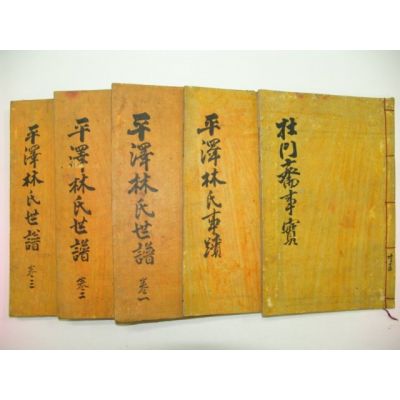 杜門齋事實
平澤林氏事蹟
平澤林氏世譜
卷一
平澤林氏世譜
卷二
平澤林氏世譜
卷三